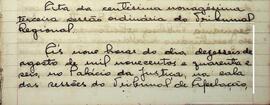 Ata da centésima nonagésima
terceira sessão ordinária do Tribunal
Regional.
Às nove horas do dia dezesseis de
agosto de mil novecentos e quarenta e
seis, no Palácio da Justiça, na sala
das sessões do Tribunal de Apelação,